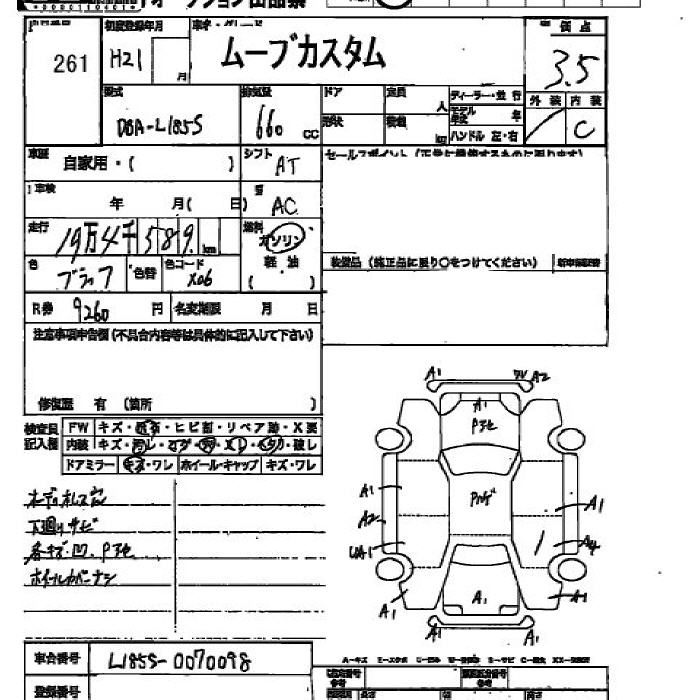 オークション出品票
261
初度登録年月
H21
月
車名・グレード
ムーブカスタム
評価点
3.5
型式
DBA-L185S
排気量
660 cc
ドア
定員
人
形状
積載
kg
ディーラー・並行
モデル年式
年
ハンドル 左・右
外装
内装
C
車歴
自家用・( )
シフト
AT
セールスポイント (正常に機能するものに限ります)
車検
年 月( 日)
AC
走行
19万4千589 km
燃料
ガソリン
軽油
( )
色
ブラック
色替
色コード
X06
装備品 (純正品に限り○をつけてください)
R券
9260 円
名変期限
月 日
注意事項申告欄 (不具合内容等は具体的に記入して下さい)
修復歴 有 (箇所 )
検査員記入欄
FW キズ・飛石・ヒビ割・リペア跡・X要
内装 キズ・汚レ
ドアミラー キズ・ワレ ホイール・キャップ キズ・ワレ
下廻りサビ
各キズ・凹、Pヲ化
A1
A2
A1
Pヲ化
A1
A2
UA1
A1
A4
A1
A1
A1
A1
A1
車台番号
L185S-0070098
登録番号